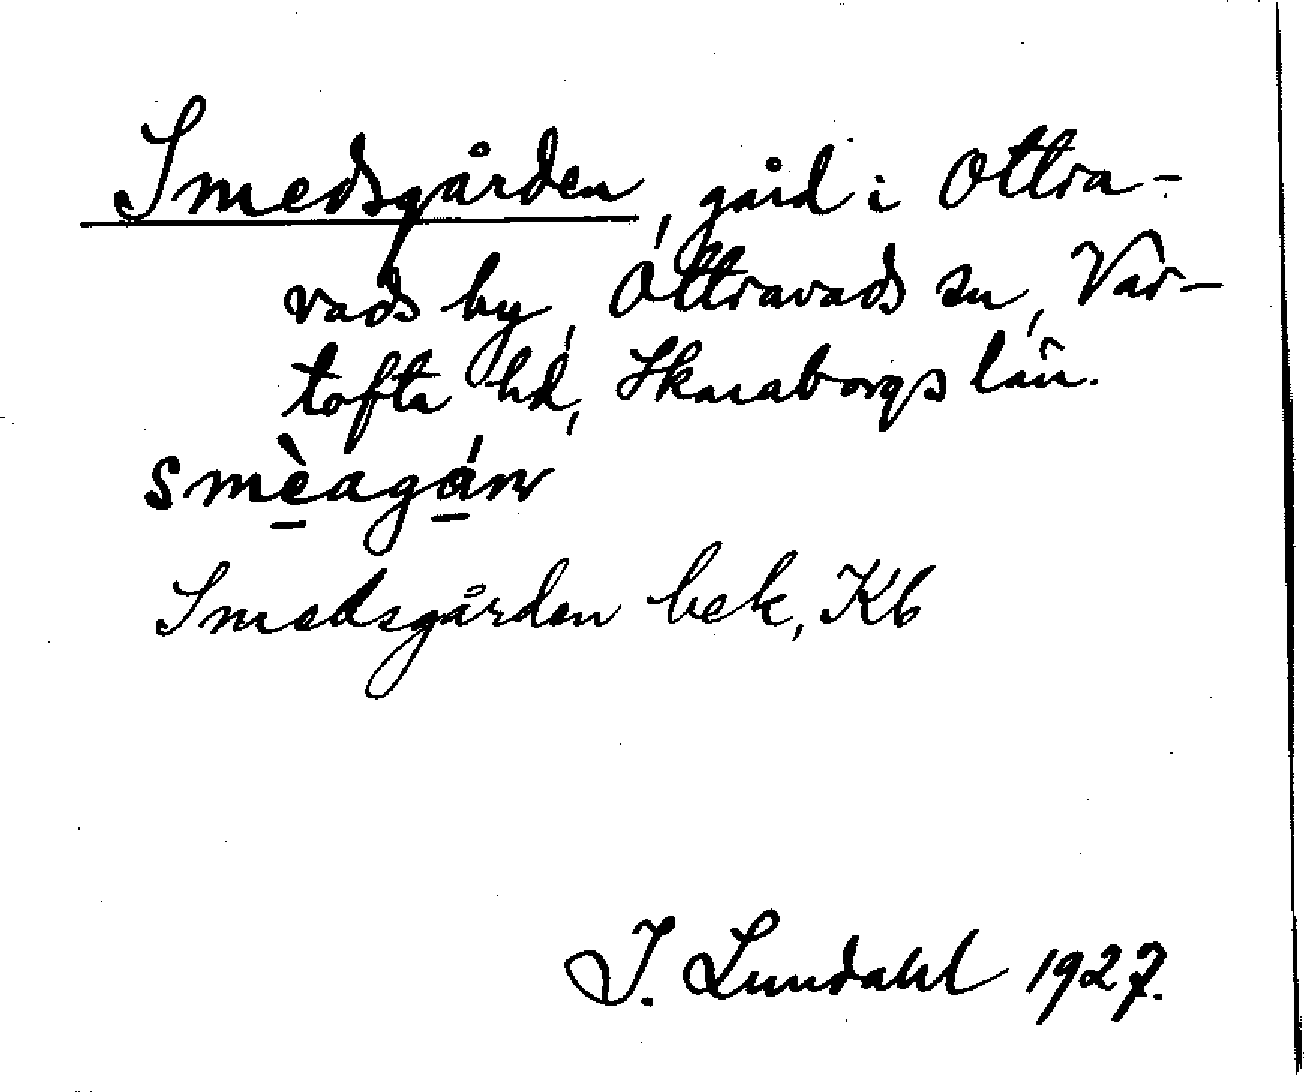 Smedsgården, gård i Ottra-
vads by, Ottravads sn, Var-
tofta hd, Skaraborgs län.
smèagánr
Smedsgården bek, Kb
I. Lundahl 1927.